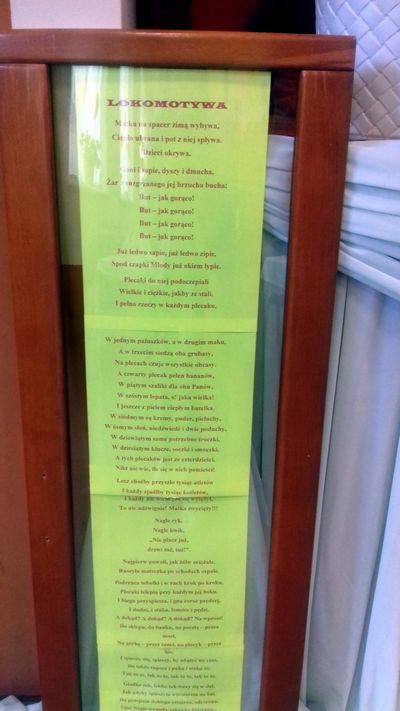 LOKOMOTYWA
Matka na spacer zimą wybywa,
Ciepło ubrana i pot z niej spływa.
Dzieci okrywa.
Goni i sapie, dyszy i dmucha,
Żar z rozgrzanego jej brzucha bucha:
But – jak gorąco!
But – jak gorąco!
But – jak gorąco!
But – jak gorąco!
Już ledwo sapie, już ledwo zipie,
Spod czapki Młody już okiem łypie.
Plecaki do niej podoczepiali
Wielkie i ciężkie, jakby ze stali,
I pełno rzeczy w każdym plecaku,
W jednym paluszków, a w drugim maku,
A w trzecim siedzą oba grubasy,
Na plecach czuje wszystkie
A czwarty plecak pełen bananów,
W piątym szaliki dla obu Panów,
W szóstym łopata, o! jaka wielka!
I jeszcze z piciem ciepłym butelka.
W siódmym są kremy, puder, pieluchy,
W ósmym słoń, niedźwiedź i dwie poduchy,
W dziewiątym same potrzebne troczki,
W dziesiątym klucze, soczki i smoczki,
A tych plecaków jest ze czterdzieści,
Nikt nie wie, ile się w nich pomieści!
Lecz choćby przyszło tysiąc atletów
I każdy zjadłby tysiąc kotletów,
I każdy nie wiem jak się wytężył,
To nie udźwignie! Matka zwycięży!!!
Nagle ryk,
Nagle kwik,
„Nie płacz już,
drzwi tuż, tuż!”.
Najpierw powoli, jak żółw ociężale,
Ruszyła mateczka po schodach ospale.
Podrzuca tobołki i w ruch krok po kroku,
Plecaki telepią przy każdym jej boku.
I biegu przyspiesza, i gna coraz prędzej,
I dudni, i stuka, łomoce i pędzi.
A dokąd? A dokąd? A dokąd? Na wprost!
Do sklepu, do banku, na pocztę – przez
most,
Na górkę – przez tunel, na placyk – przez
las,
I spieszy się, spieszy, by zdążyć na czas,
Do taktu sapoce i puka i stuka to:
Tak to to, tak to to, tak to to, tak to to.
Gładko tak, lekko tak toczy się w dal,